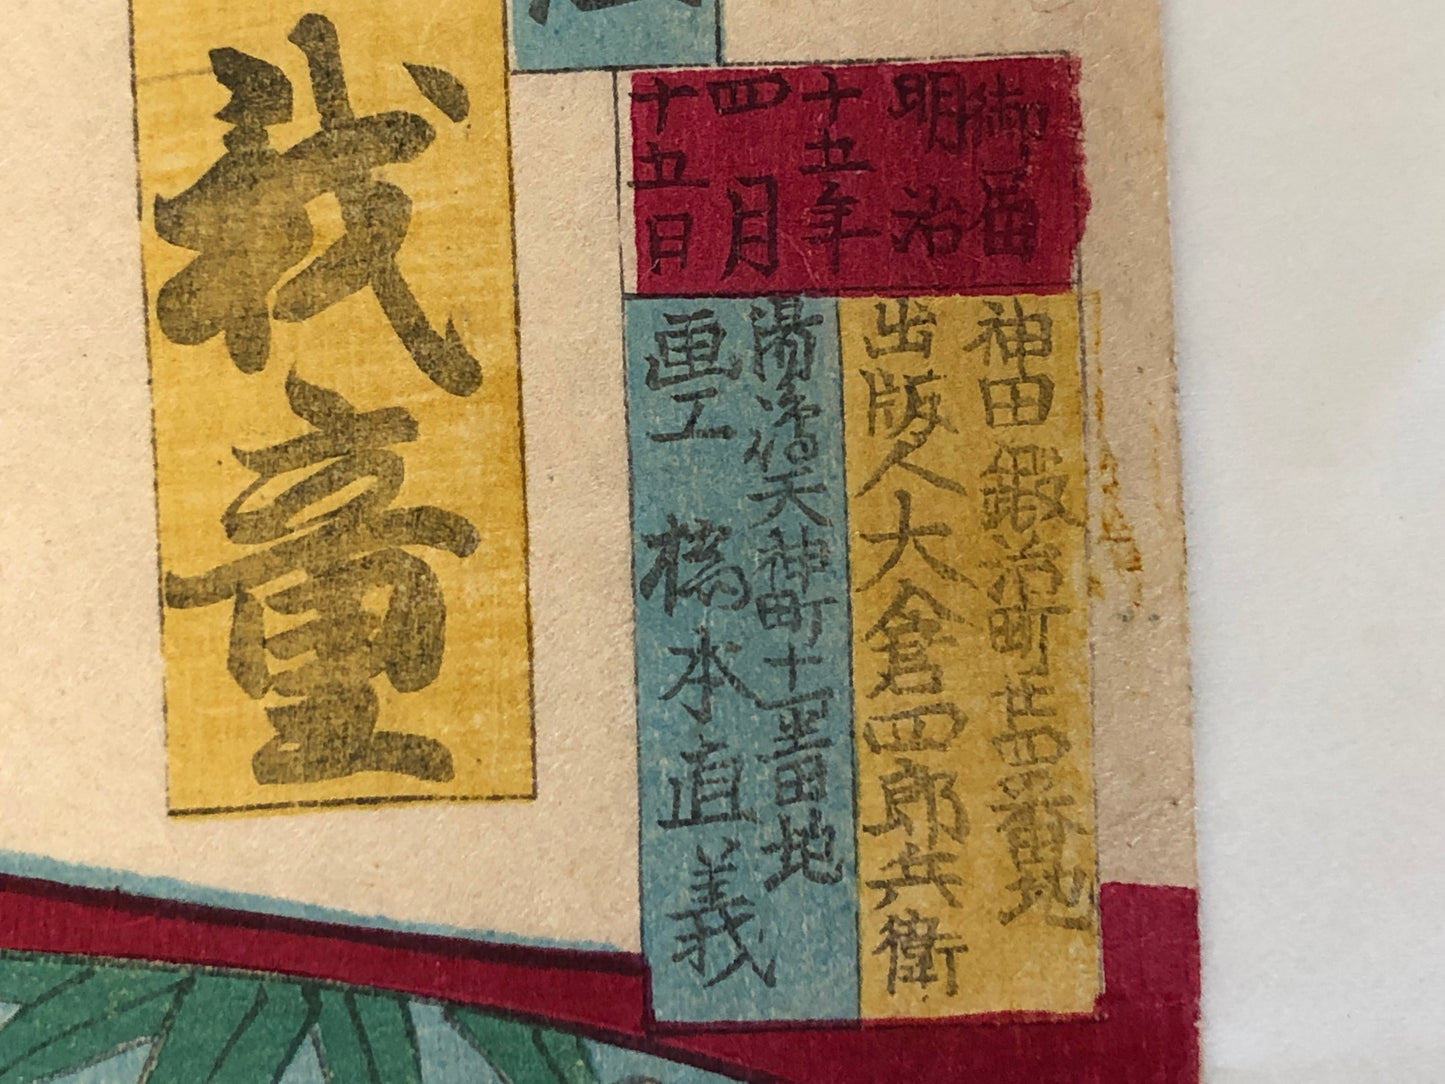 御届
明治
十五年
四月
十五日
神田鍜治町 番地
出版人大倉四郎兵衛
湯 天神町十一番地
画工 橋本直義
我童